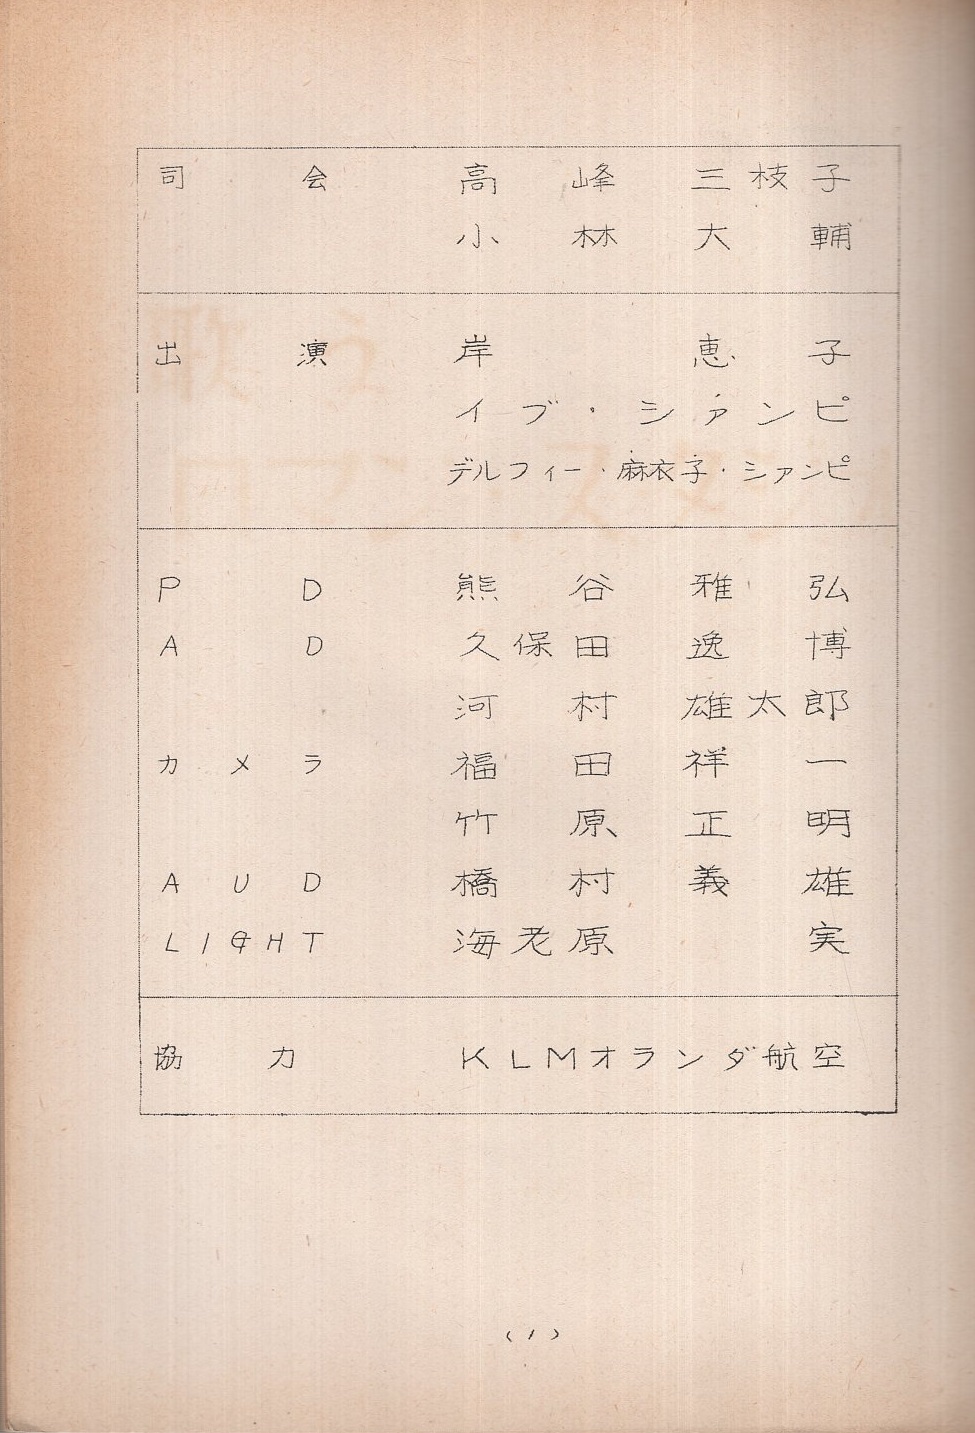 司会 高峰三枝子
小林大輔
出演 岸恵子
イブ・シァンピ
デルフィー・麻衣子・シァンピ
PD 熊谷雅弘
AD 久保田逸博
河村雄太郎
カメラ 福田祥一
竹原正明
AUD 橋村義雄
LIGHT 海老原実
協力 KLMオランダ航空
(1)